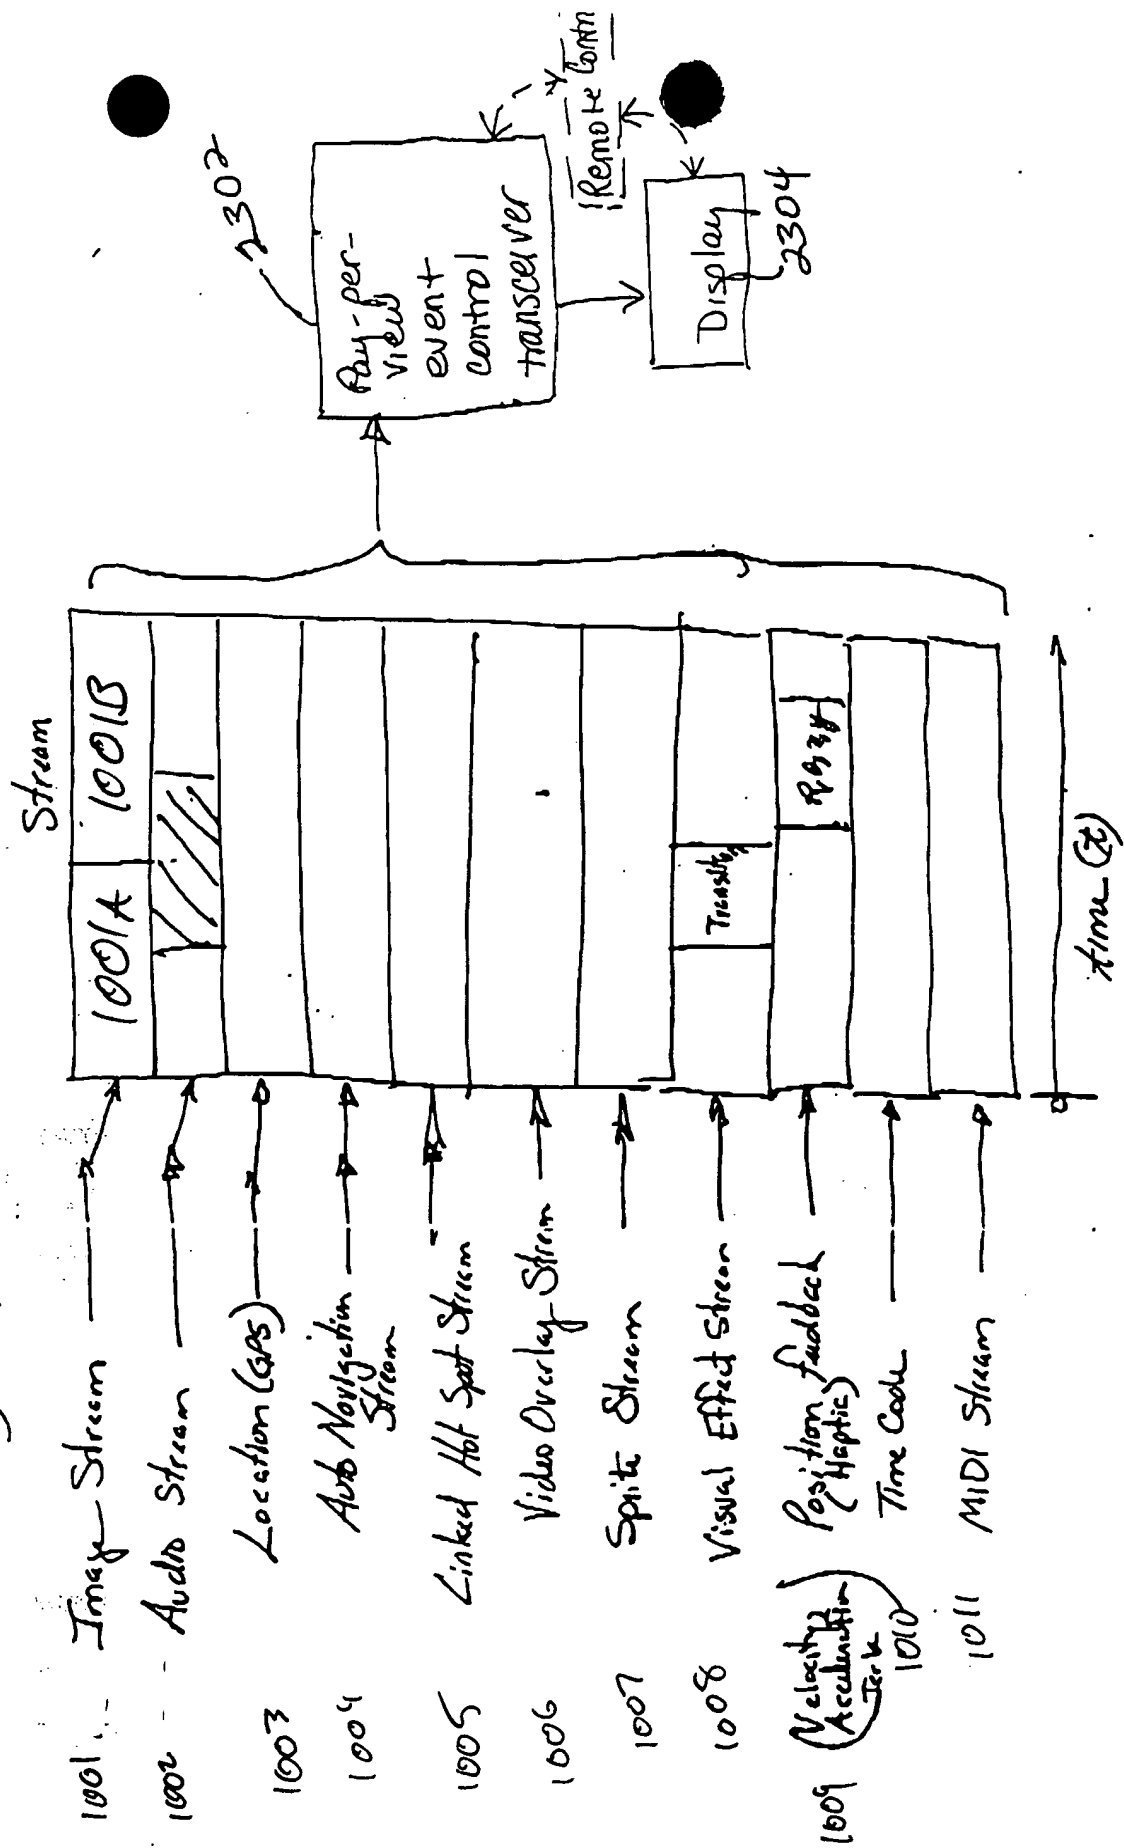 Stream
1001A 1001B
1001 Image Stream
1002 Audio Stream
1003 Location (GPS)
1004 Auto Navigation
Stream
1005 Linked Hot Spot Stream
1006 Video Overlay Stream
1007 Sprite Stream
1008 Visual Effect Stream
1009 (Velocity
Acceleration
Jerk
Position feedback
(Haptic)
1010 Time Code
1011 MIDI Stream
time (t)
2302
Pay-per-
view
event
control
transceiver
Remote Contr
Display
2304